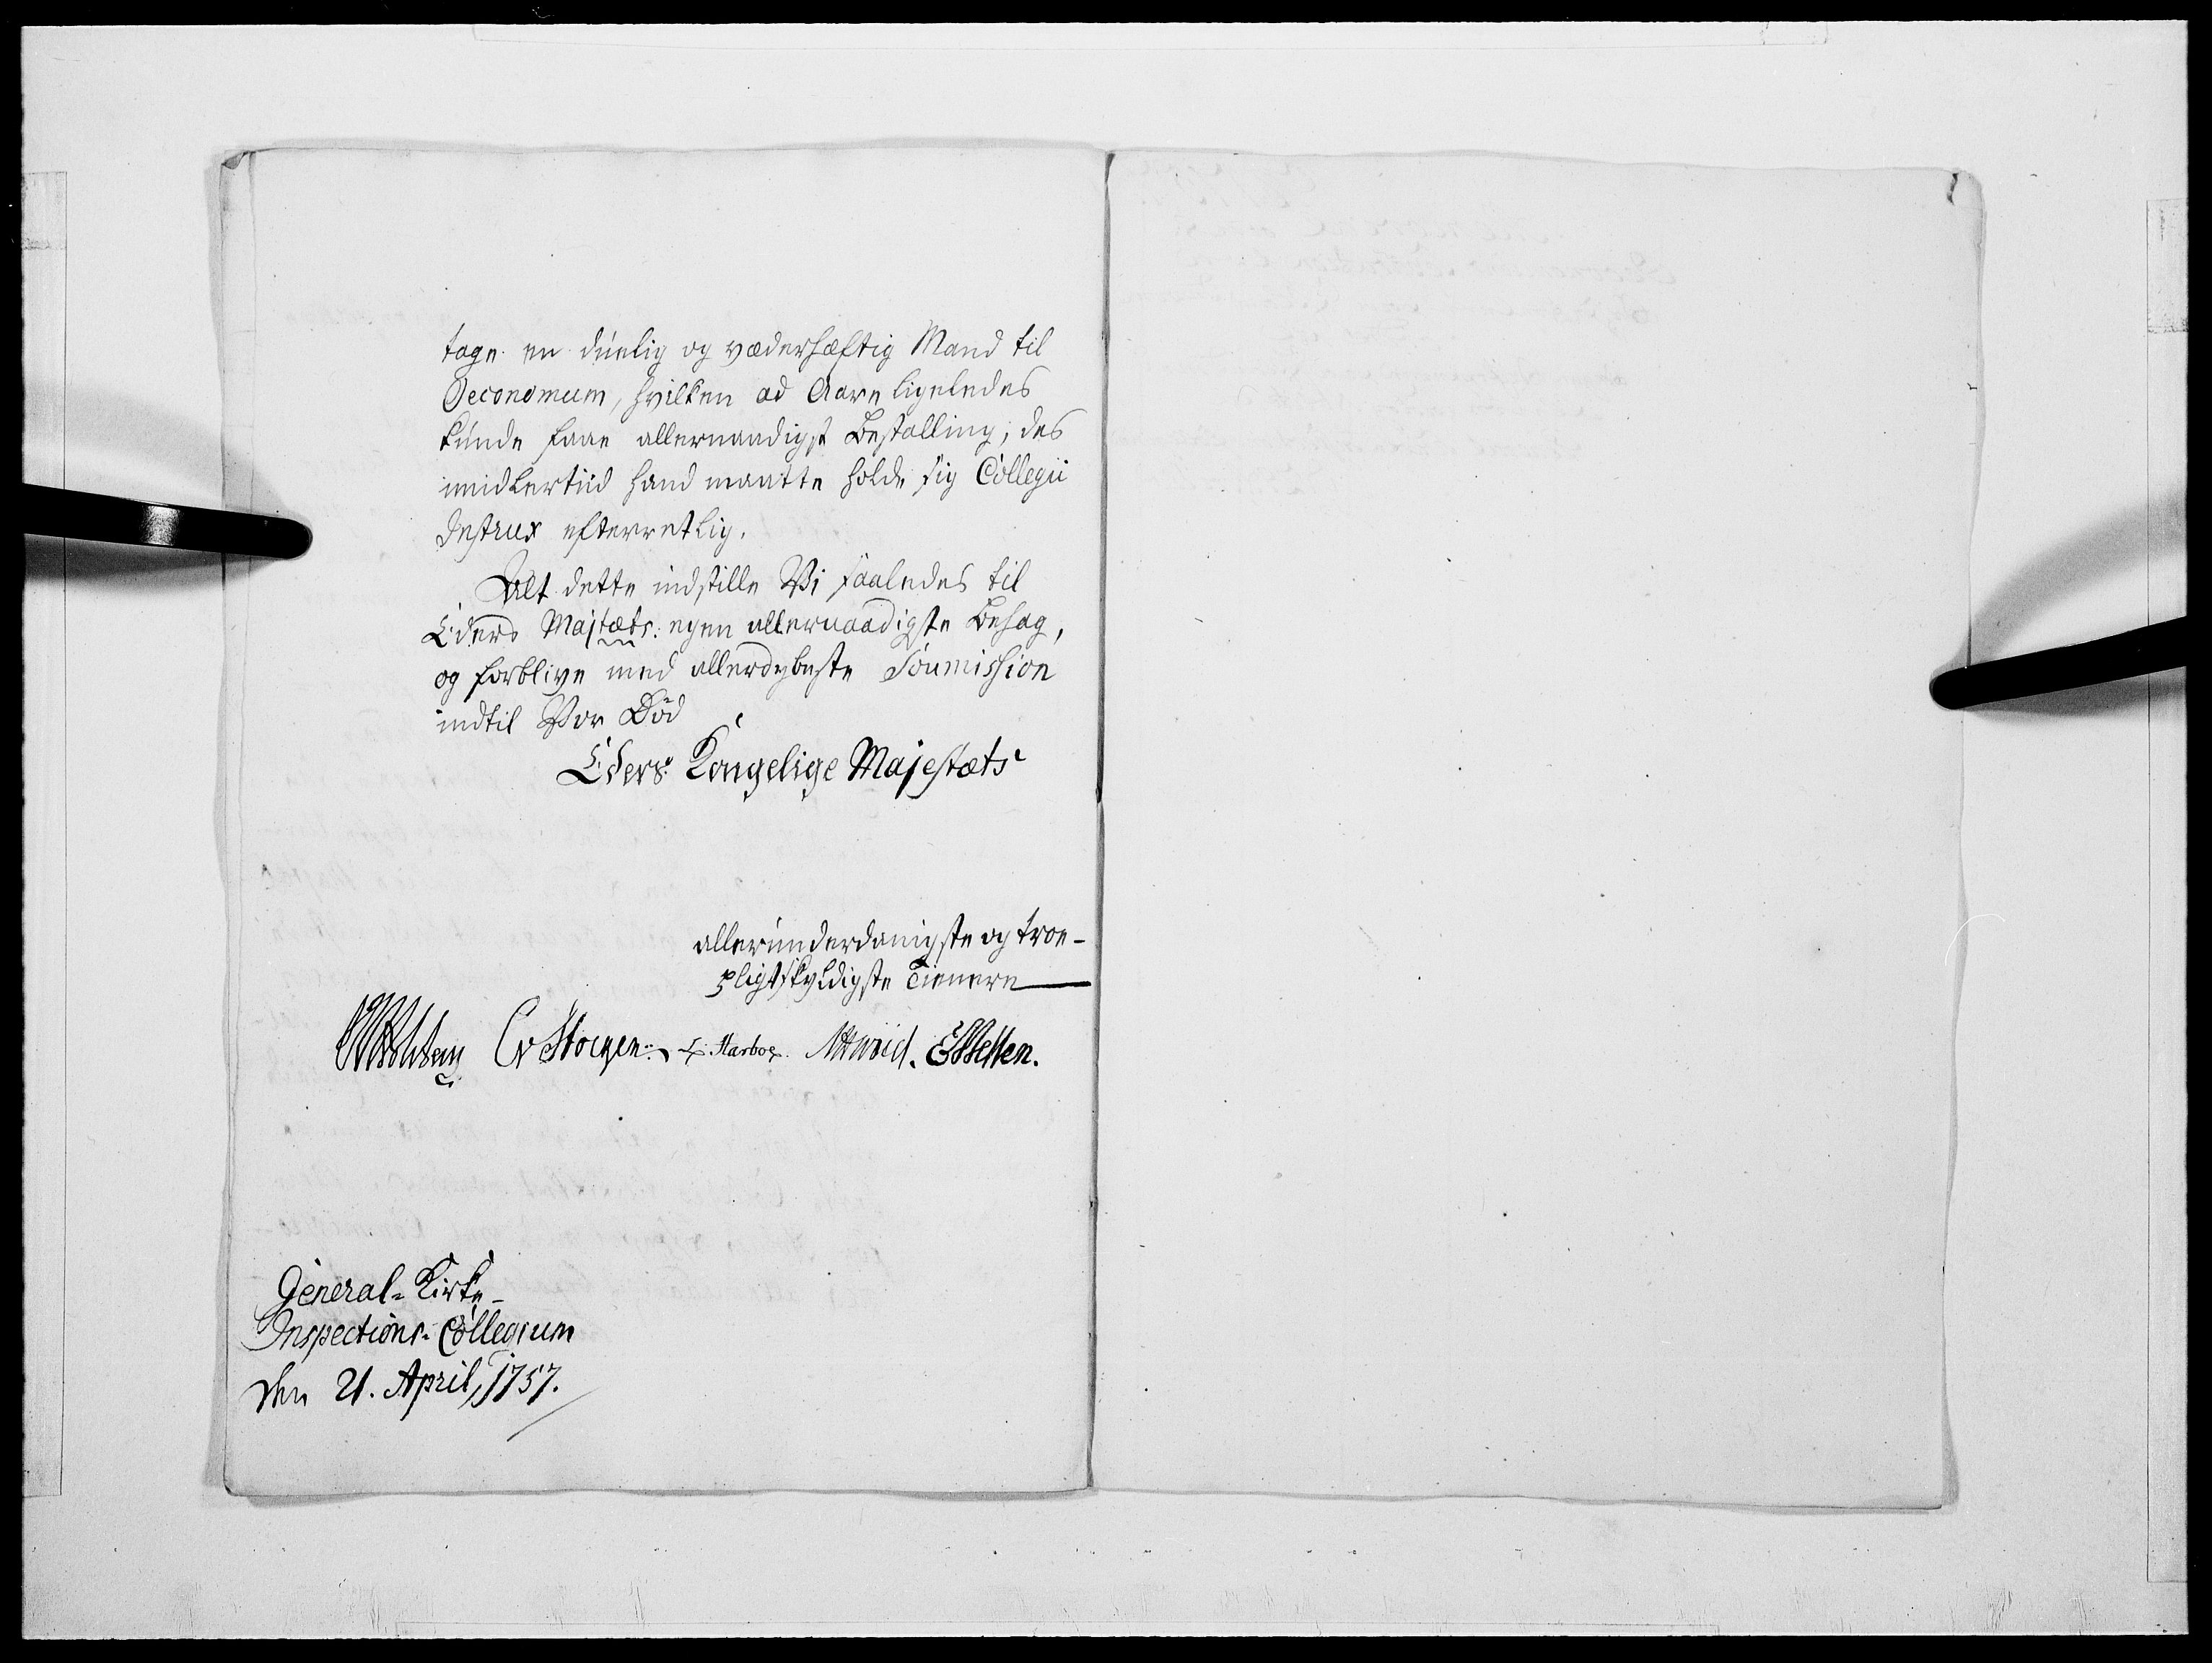 tage en duelig og vederhæftig Mand til
Oeconomum, hvilken ad Aare ligeledes
kunde faae allernaadigst Bestalling; des
imidlertiid hand maatte holde sig Collegii
Instrux efterretlig.
Alt dette indstille Vi saaledes til
Eders Majtæts: egen allernaadigste Behag,
og forblive med allerdybeste Soumission
indtil Vor Död
Eders Kongelige Majestæts
allerunderdanigste og troe-
pligtskyldigste Tienere
Holstein C v Stöcken L: Harboe.
General-Kirke-
Inspections-Collegium
den 21. April, 1757.